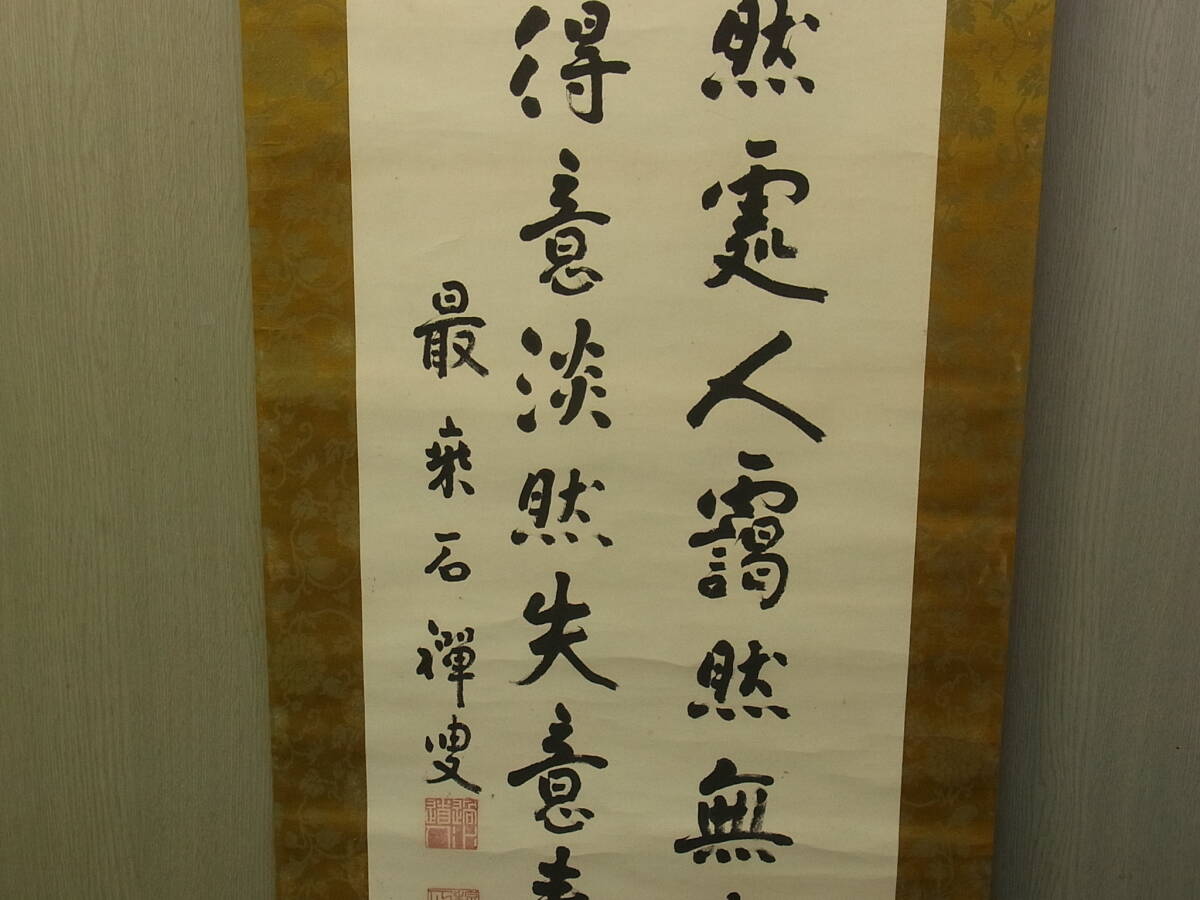 然處人靄然無
得意淡然失意
最乗石禅叟